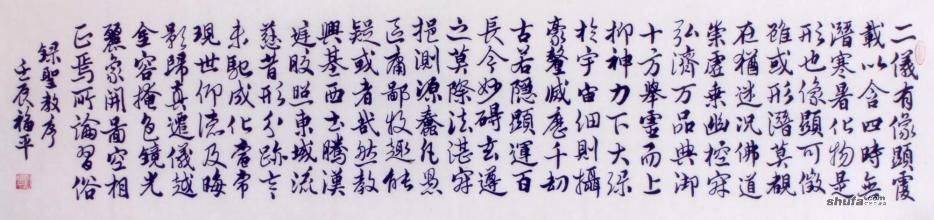 二儀有像顯覆
載以含四時無
潛寒暑化物是
形也像顯可徵
雖或形潛莫覩
在猶迷況佛道
崇虛乘幽控寂
弘濟万品典御
十方舉靈而上
抑神力下大彌
於宇宙細則攝
豪釐滅應千劫
古若隱顯運百
長今妙礙玄遵
之莫際法湛寂
挹測源蠢凡愚
區庸鄙投趣能
疑或者哉然教
興基西土騰漢
庭皎照東域流
慈昔形分跡言
未馳成化當常
現世仰德及晦
影歸真遷儀越
金容掩色鏡光
麗象開圖空相
正焉所論習俗
録聖教序
壬辰福平
shufa.com